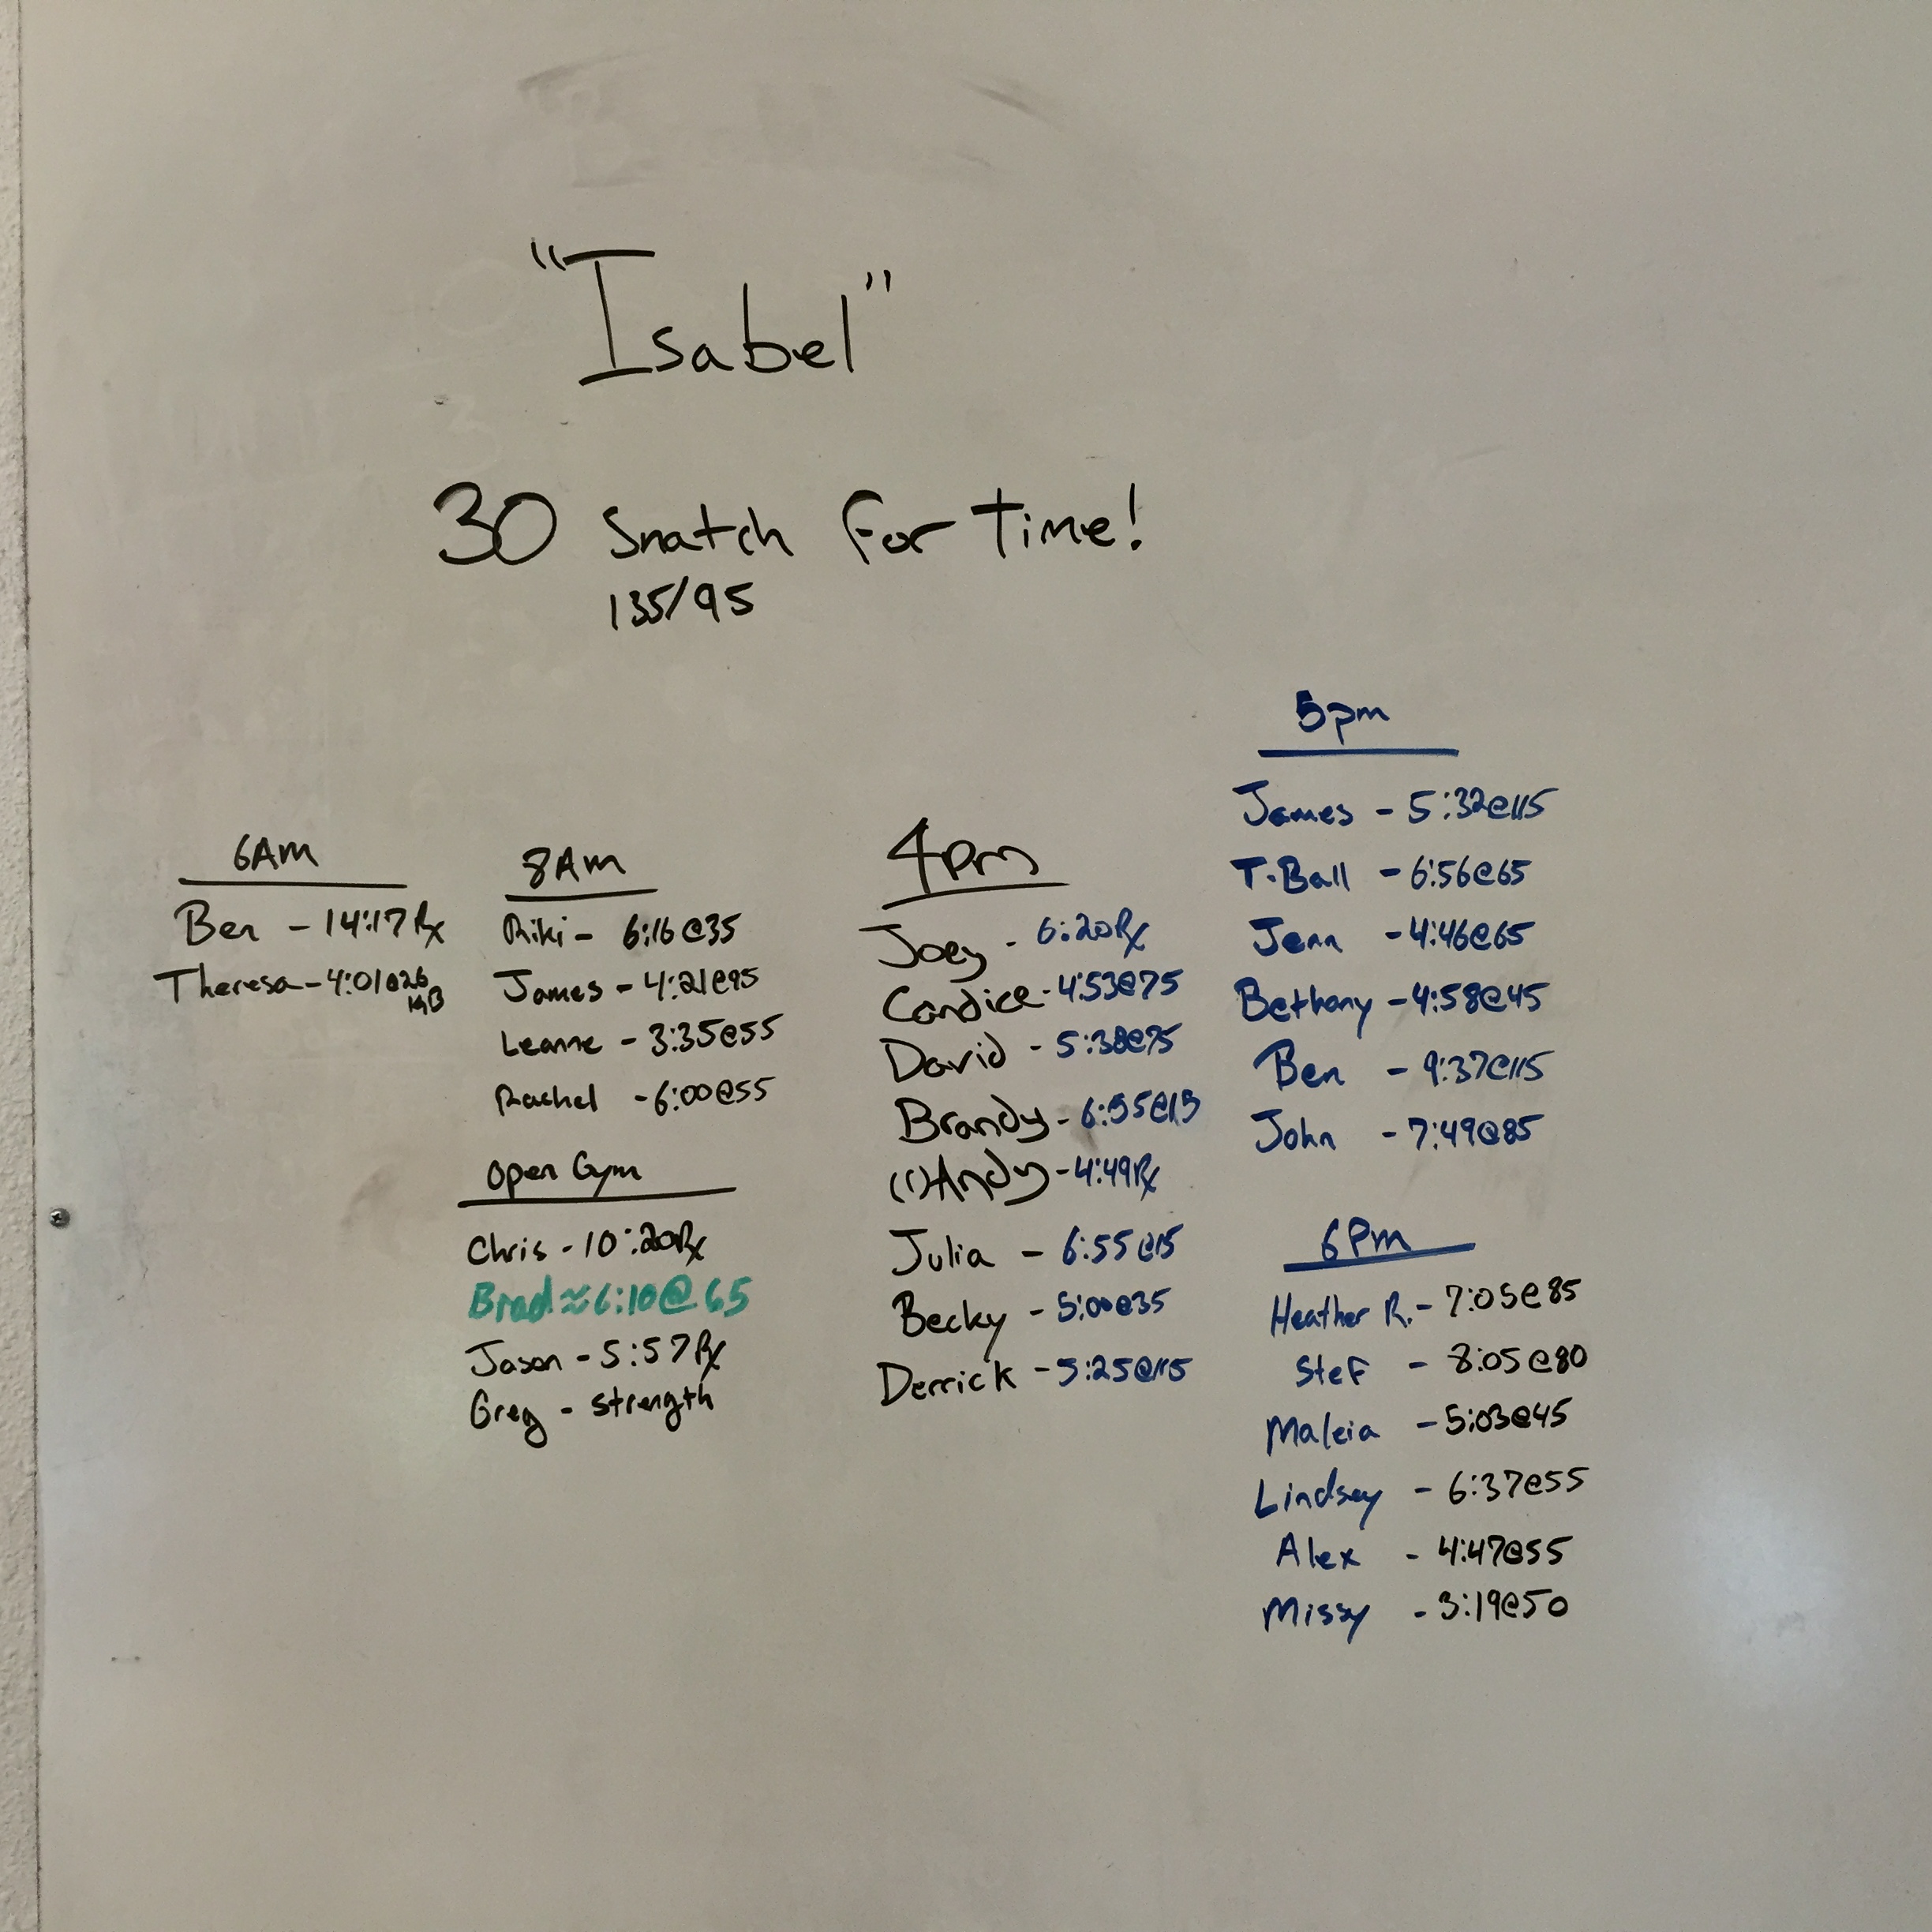 "Isabel"
30 Snatch For Time!
135/95
6Am
Ben - 14:17 Rx
Theresa - 4:01@26
KB
8Am
Riki - 6:16@35
James - 4:21@95
Leanne - 3:35@55
Rachel - 6:00@55
Open Gym
Chris - 10:20Rx
Brad ≈ 6:10@65
Jason - 5:57Rx
Greg - strength
4pm
Joey - 6:20Rx
Candice - 4:53@75
David - 5:38@75
Brandy - 6:55@15
(1)Andy - 4:49Rx
Julia - 6:55@15
Becky - 5:00@35
Derrick - 5:25@115
5pm
James - 5:32@115
T-Ball - 6:56@65
Jenn - 4:46@65
Bethany - 4:58@45
Ben - 9:37@115
John - 7:49@85
6Pm
Heather R. - 7:05@85
Stef - 8:05@80
Maleia - 5:03@45
Lindsey - 6:37@55
Alex - 4:47@55
Missy - 3:19@50